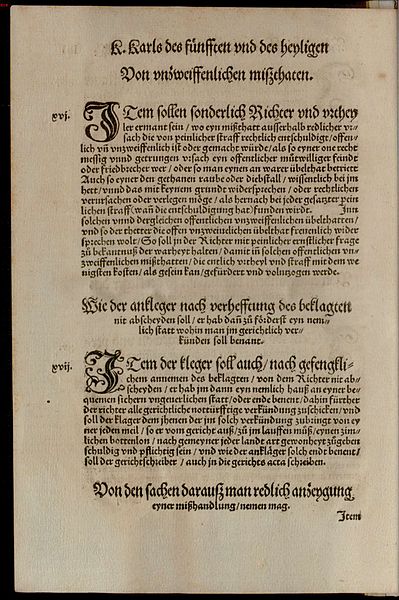 K. Karls des fünfften vnd des heyligen
Von vnzweiffenlichen mißthaten.
xvj.
ITem sollen sonderlich Richter vnd vrthey
ler ermant sein / wo eyn mißthatt ausserhalb redlicher vr⸗
sach die von peinlicher straff rechtlich entschuldigt / offen⸗
lich vnd vnzweiffenlich ist oder gemacht würde / als so eyner one recht
messig vnnd getrungen vrsach eyn offentlicher mütwilliger feindt
oder friedbrecher wer / oder so man eynen an warer übelthat betritt
Auch so eyner den gethanen raube oder diebstall / wissentlich bei jm
hett / vnnd das mit keynem grundt widersprechen / oder rechtlichen
verursachen oder verlegen möge / als hernach bei jeder gesatzter pein
lichen straff / wañ die entschuldigung hat / funden wirdt. Inn
solchen vnnd dergleichen offentlichen vnzweiffenlichen übelthatten /
vnd so der thetter die offen vnzweiuelichen übelthat freuenlich wider
sprechen wolt / So soll jn der Richter mit peinlicher ernstlicher frage
zů bekantnuß der warheyt halten / damit in solchen offentlichen vn⸗
zweiffenlichen mißthatten / die entlich vrtheyl vnd straff mit dem we
nigsten kosten / als gesein kan / gefürdert vnd volnzogen werde.
Wie der ankleger nach verhefftung des beklagten
nit abscheyden soll / er hab dañ zů förderst eyn nem⸗
lich statt wohin man jm gerichtlich ver⸗
künden soll benant.
xvij.
ITem der kleger soll auch / nach gefengkli⸗
chem annemen des beklagten / von dem Richter nit ab⸗
scheyden / er hab jm dann eyn nemlich hauß an eyner be⸗
quemen sichern vngeuerlichen statt / oder ende benent / dahin fürther
der richter alle gerichtliche notturfftige verkündung zuschicken / vnd
soll der klager dem jhenen der jm solch verkündung zubringt von ey
ner jeden meil / so er vom gericht auß / zů jm lauffen můß / eynen zim⸗
lichen bottenlon / nach gemeyner jeder landt art gewonheyt zůgeben
schuldig vnd pflichtig sein / vnd wie der ankläger solch endt benent /
soll der gerichtschreiber / auch in die gerichts acta schreiben.
Von den sachen darauß man redlich anzeygung
eyner mißhandlung / nemen mag.
Item